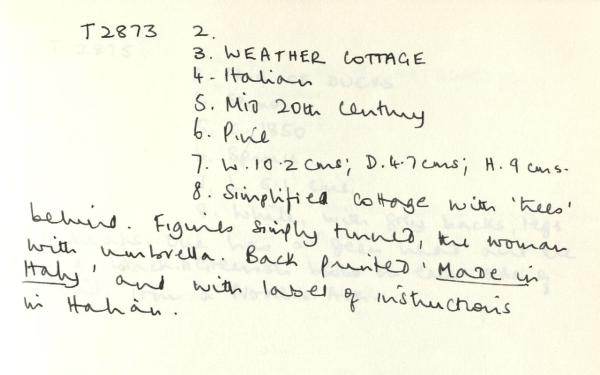 T2873 2.
3. WEATHER COTTAGE
4. Italian
5. Mid 20th Century
6. Pine
7. W. 10.2 cms; D. 4.7 cms; H. 9 cms.
8. Simplified cottage with 'trees'
behind. Figures simply turned, the woman
with umbrella. Back printed 'Made in
Italy' and with label of instructions
in Italian.